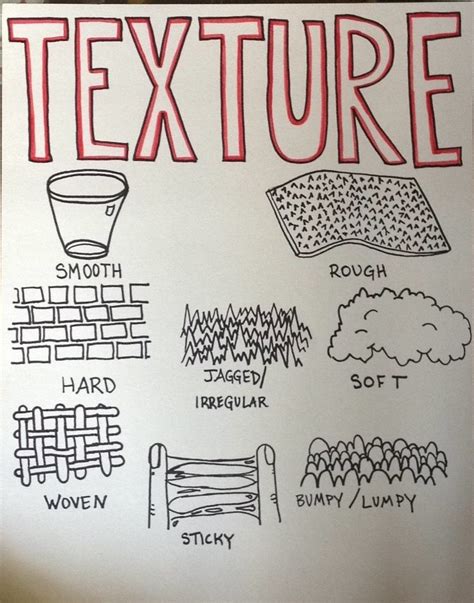 TEXTURE
SMOOTH
ROUGH
HARD
JAGGED/
IRREGULAR
SOFT
WOVEN
STICKY
BUMPY/LUMPY